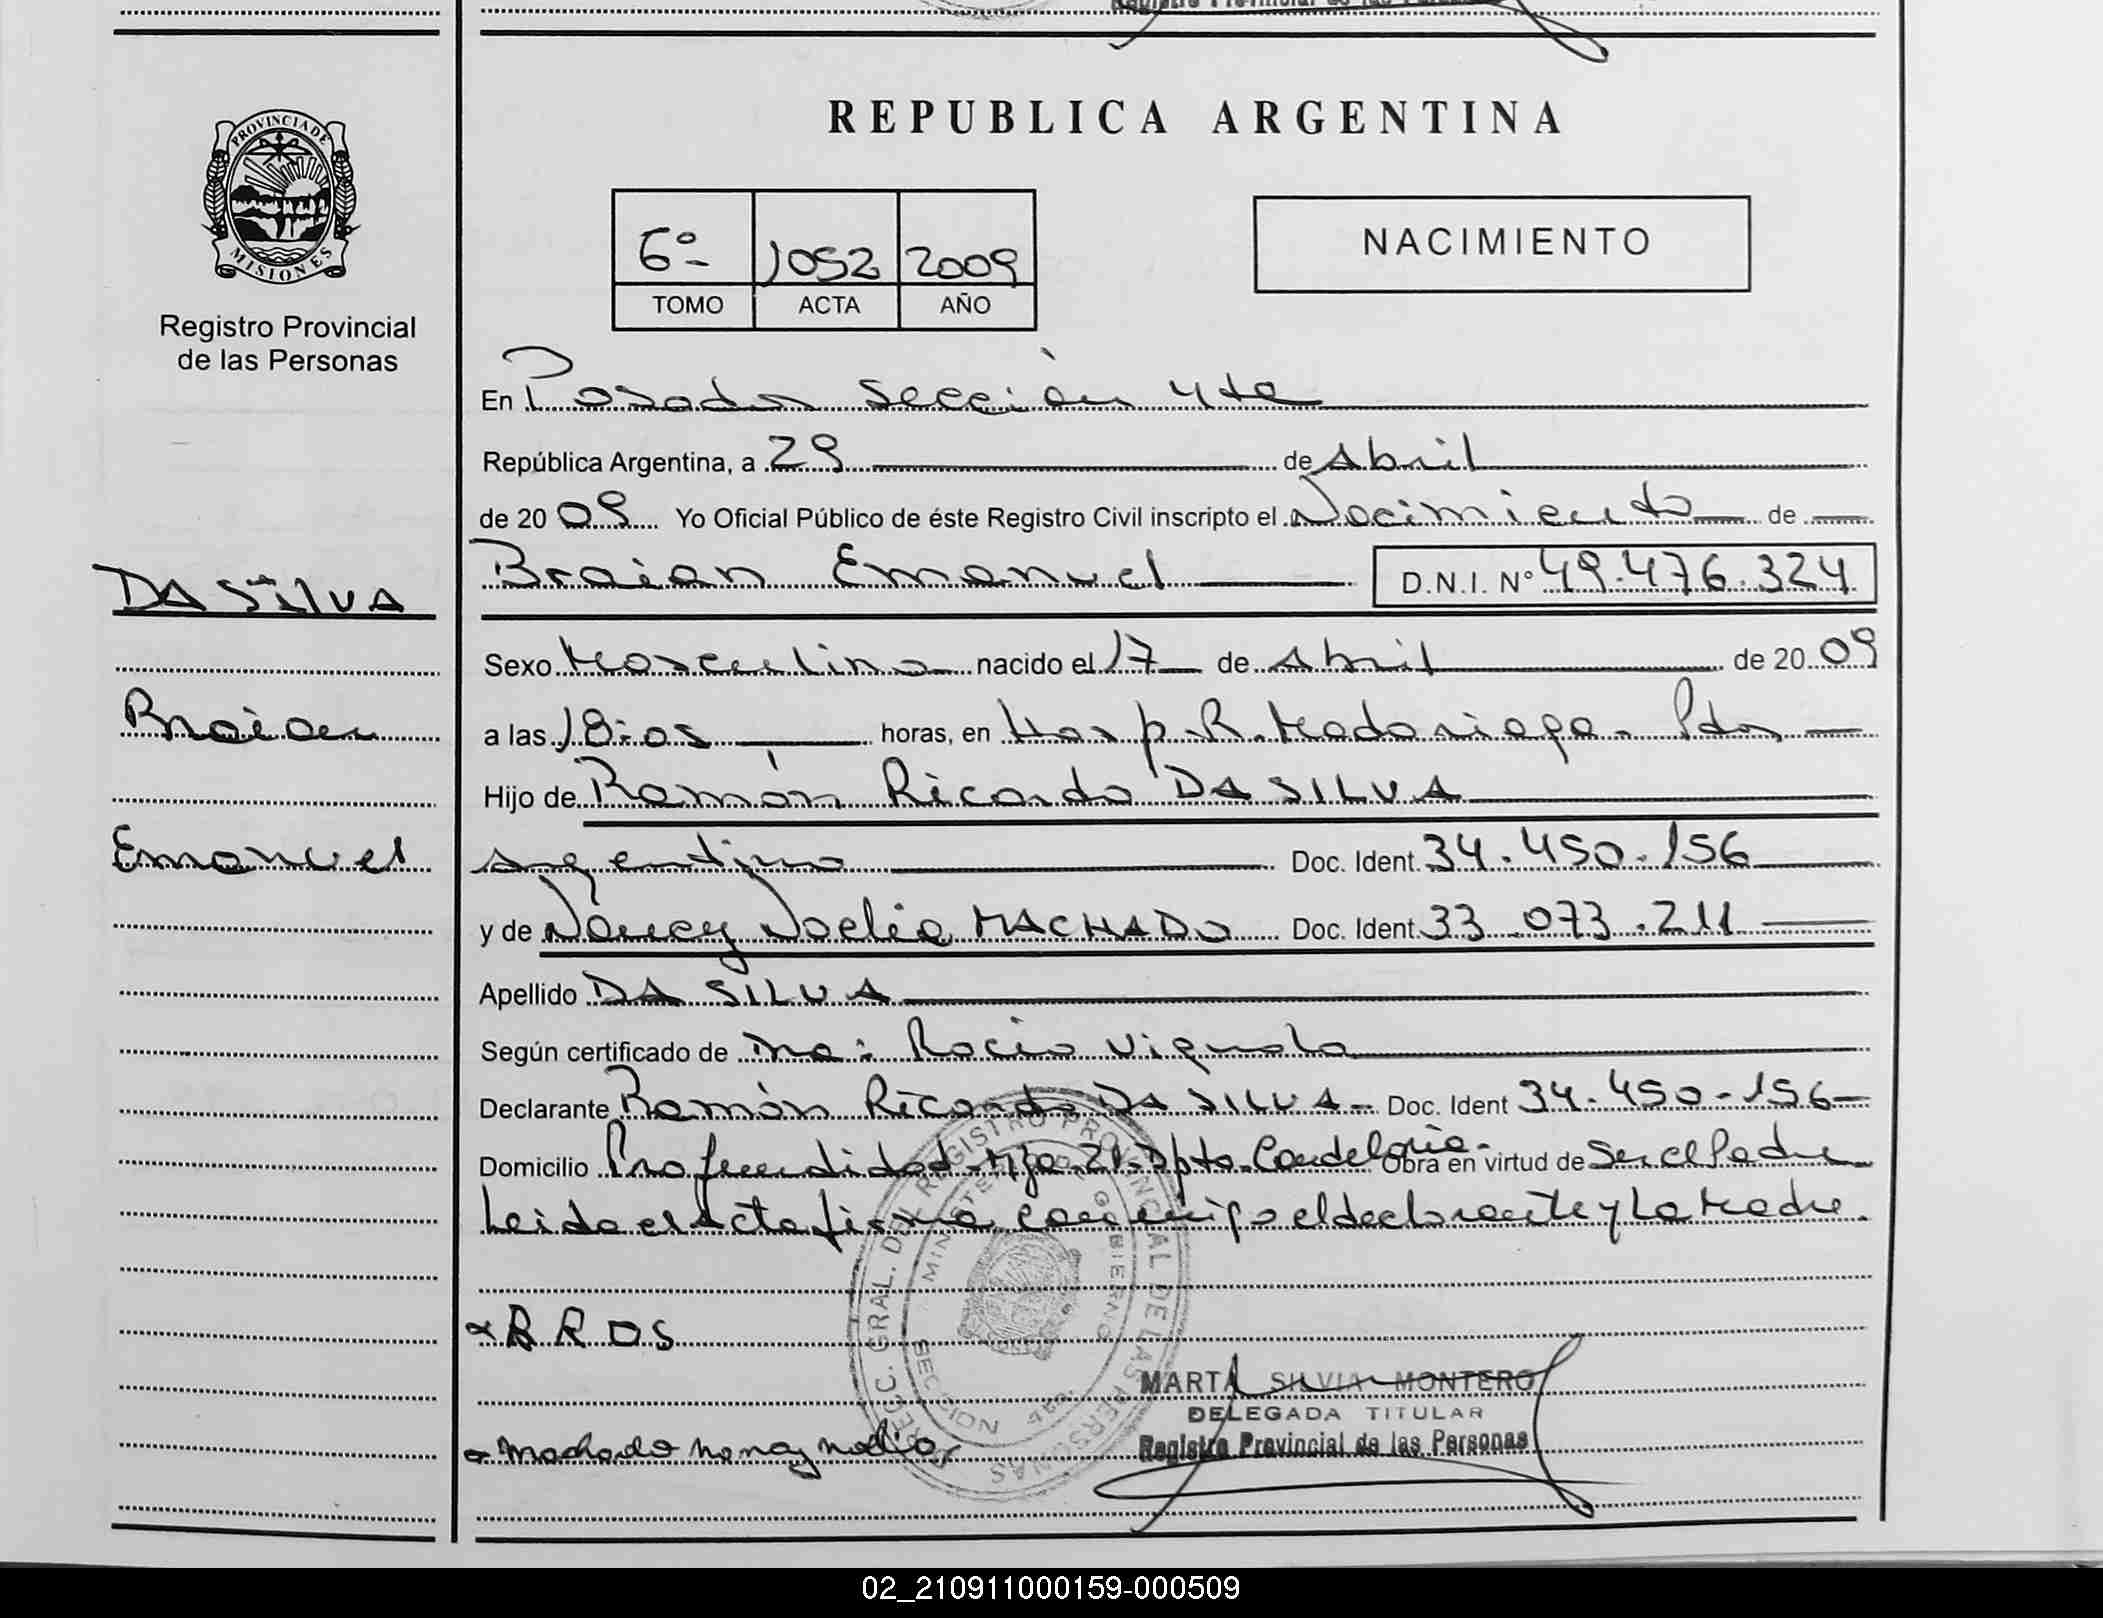 REPUBLICA ARGENTINA
PROVINCIA DE
MISIONES
Registro Provincial
de las Personas
6º 1052 2009
TOMO ACTA AÑO
NACIMIENTO
En Posadas Sección 4ta
República Argentina, a 29 de Abril
de 2009 Yo Oficial Público de éste Registro Civil inscripto el Nacimiento de
Braian Emanuel D.N.I. Nº 49.476.324
DA SILVA
Sexo Masculino nacido el 17 de Abril de 2009
Braian
a las 18:05 horas, en Hosp. R. Madariaga. Pdas
Hijo de Ramón Ricardo DA SILVA
Emanuel
Argentino Doc. Ident. 34.450.156
y de Nancy Noelia MACHADO Doc. Ident. 33.073.211
Apellido DA SILVA
Según certificado de Dra: Rocio Vignola
Declarante Ramón Ricardo DA SILVA Doc. Ident 34.450.156
Domicilio Profundidad Mza 21. Dpto. Candelaria. Obra en virtud de Ser el Padre
Leida el Acta firma conmigo el declarante y La Madre.
RRDS
DIRECC. GRAL. DEL REGISTRO PROVINCIAL DE LAS PERSONAS
MINISTERIO DE GOBIERNO
SECCION 4ta.
MARTA SILVIA MONTERO
DELEGADA TITULAR
Registro Provincial de las Personas
Machado Nancy Noelia
02_210911000159-000509